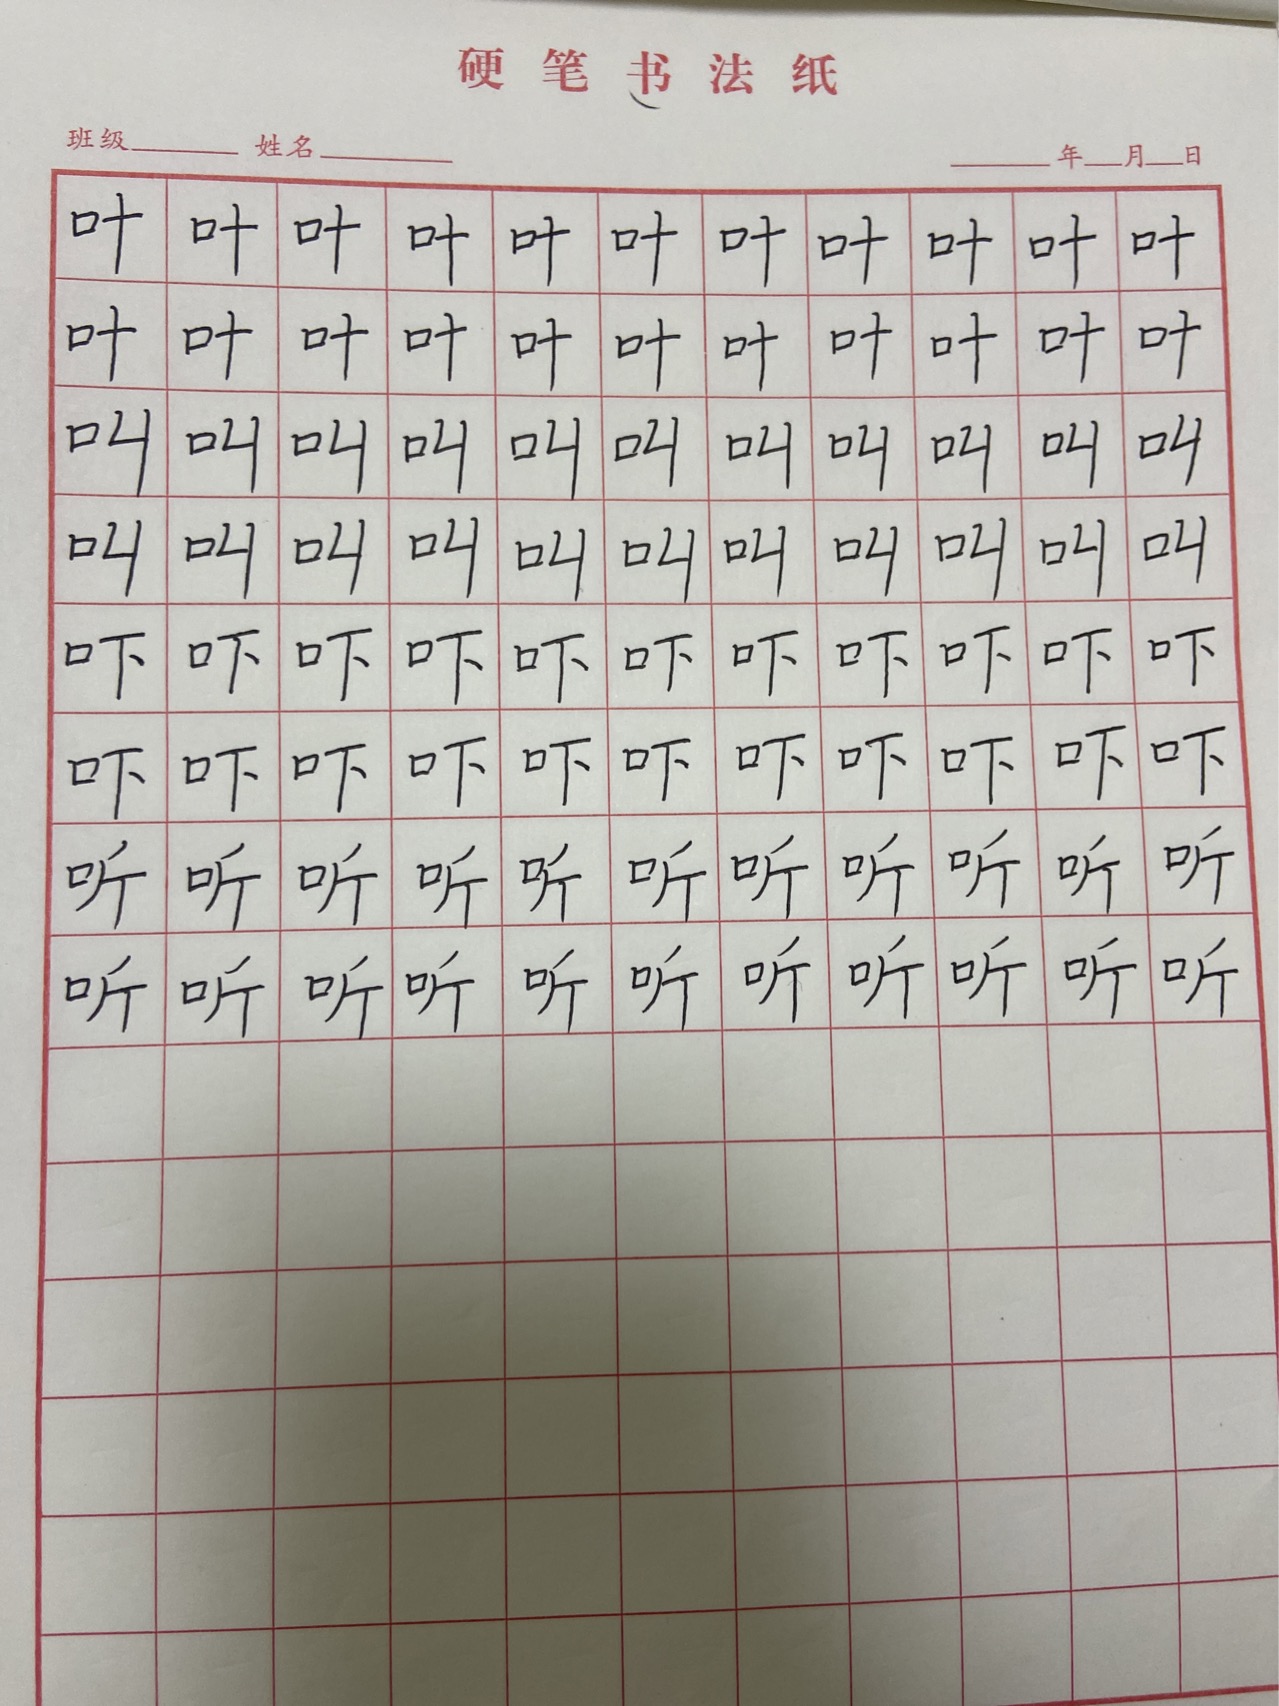 硬笔书法纸
班级 姓名 年 月 日
叶叶叶叶叶叶叶叶叶叶叶
叶叶叶叶叶叶叶叶叶叶叶
叫叫叫叫叫叫叫叫叫叫叫
叫叫叫叫叫叫叫叫叫叫叫
吓吓吓吓吓吓吓吓吓吓吓
吓吓吓吓吓吓吓吓吓吓吓
听听听听听听听听听听听
听听听听听听听听听听听